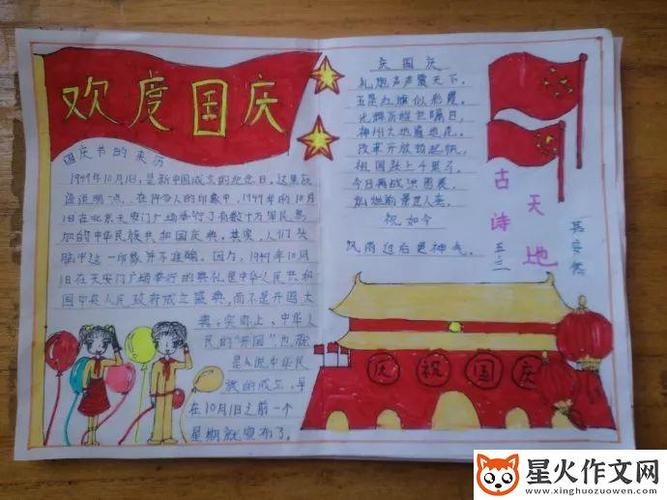 欢度国庆
国庆节的来历
1949年10月1日,是新中国成立的纪念日。这里应
该说明一点,在许多人的印象中,1949年的10月
1日在北京天安门广场举行了有数十万军民参
加的中华民族共和国庆典。其实,人们头
脑中这一印象并不准确。因为,1949年10月
1日在天安门广场举行的典礼是中华人民共和
国中央人民政府成立盛典,而不是开国大
典。实际上,中华人
民的"开国",也就
是人说中华民
族的成立,早
在10月1日之前一个
星期就宣布了。
庆国庆
礼炮声声震天下,
五星红旗似彩霞。
神州大地遍地花。
改革开放扬起帆,
祖国跃上千里马。
今日再战洪图展,
祝如今
风雨过后更神气。
古诗
天地
五.二
庆祝国庆
星火作文网
www.xinghuozuowen.com